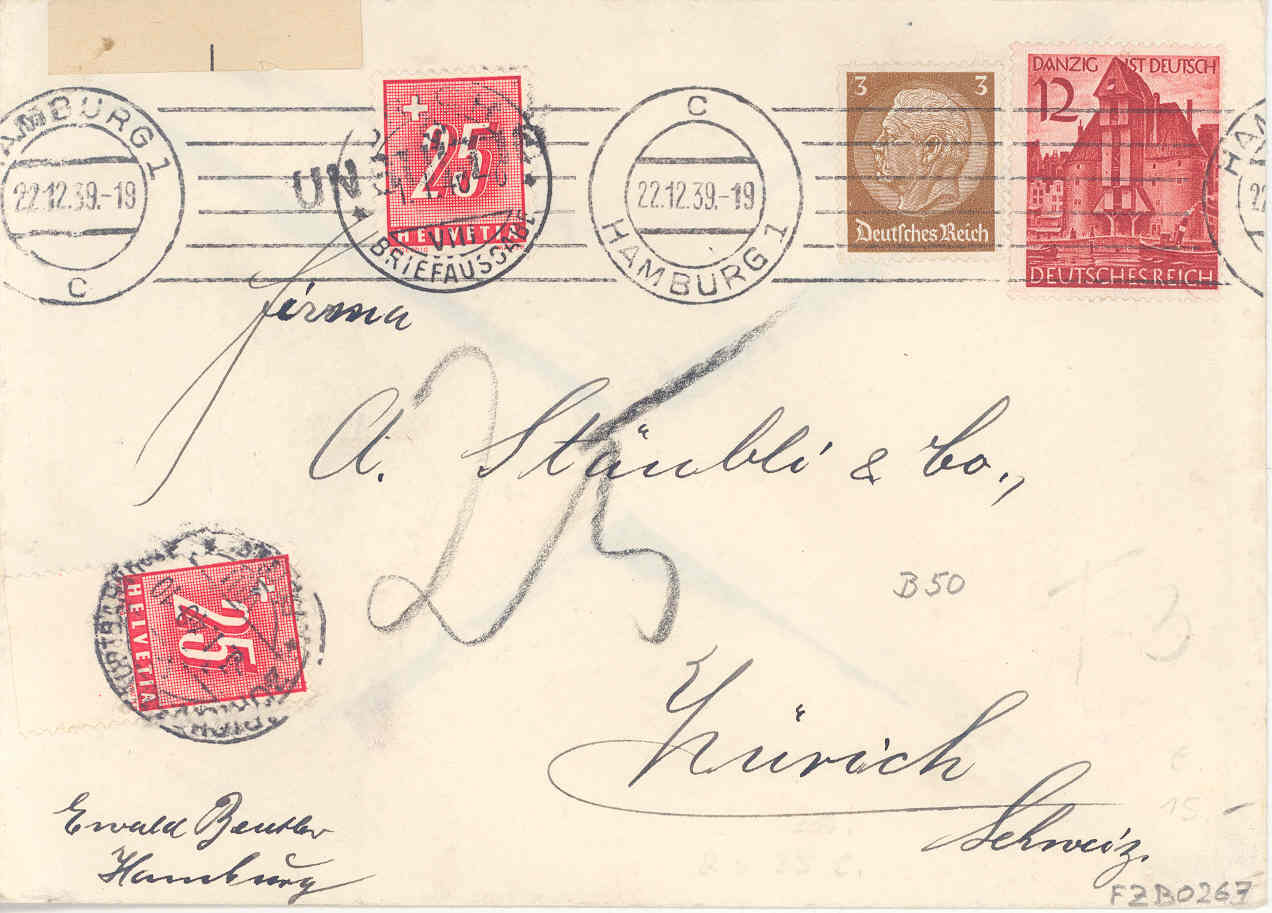 HAMBURG 1
22.12.39.-19
C
UN
25
HELVETIA
VIII
BRIEFAUSGABE
C
22.12.39.-19
HAMBURG 1
3 3
Deutsches Reich
DANZIG IST DEUTSCH
12
DEUTSCHES REICH
Firma
A. Stäubli & Co.,
25
B50
T 3
25
HELVETIA
Zürich
Schweiz.
15.-
Ewald Beutler
Hamburg
FZB0267